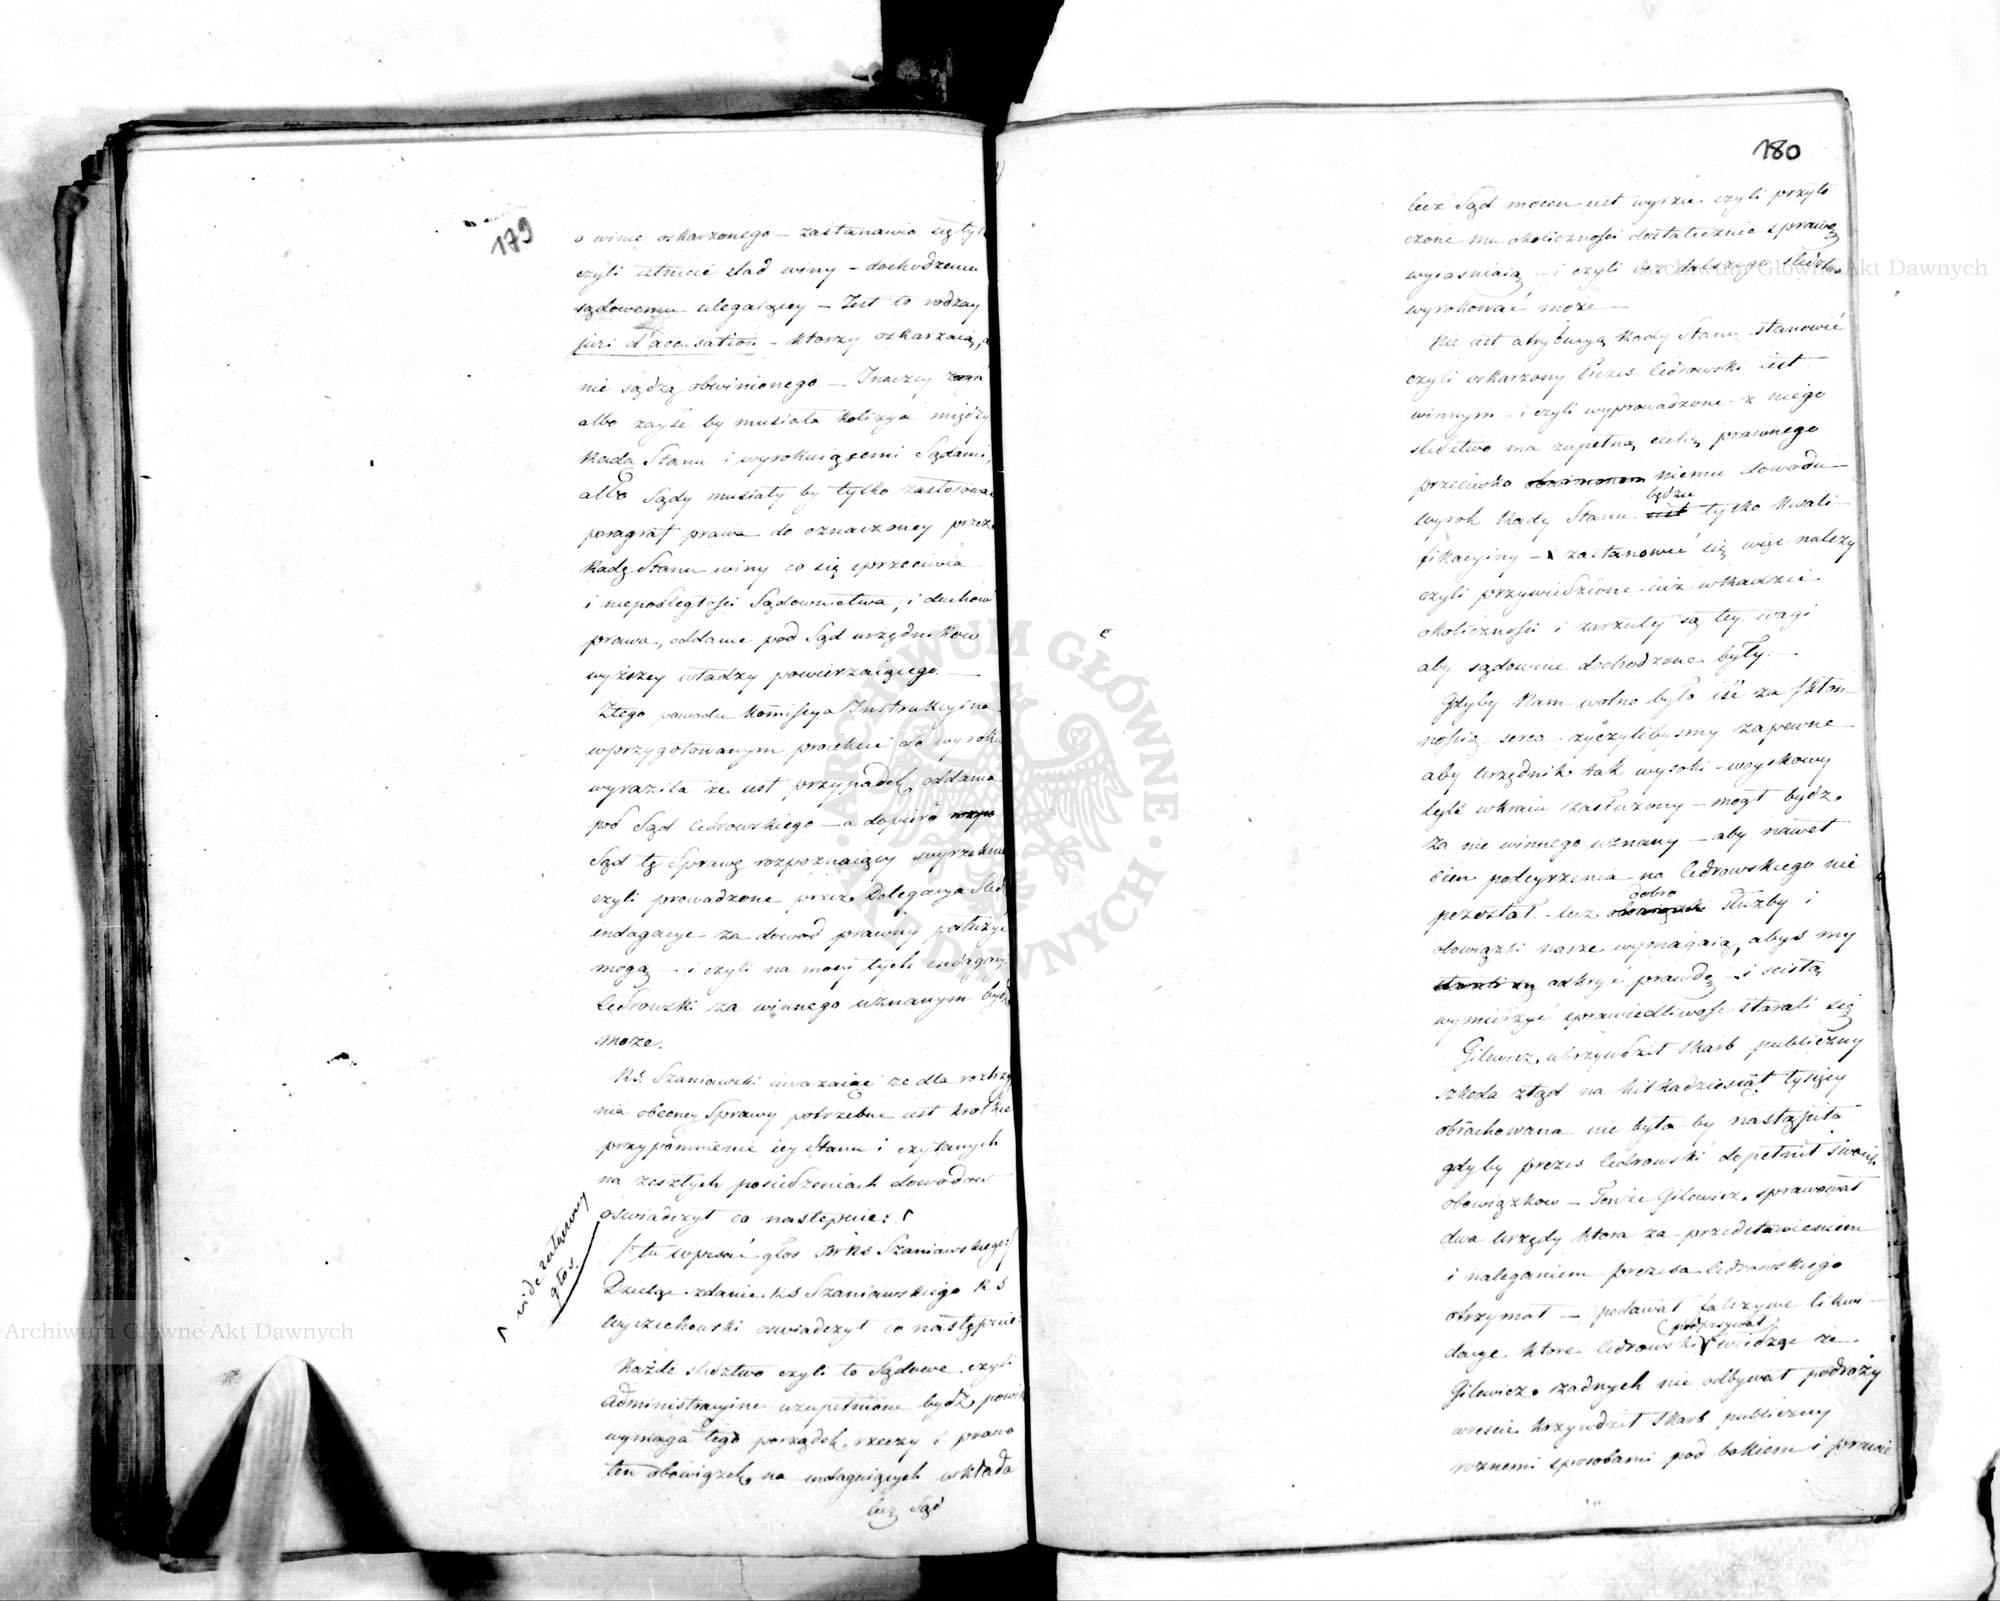 179
o winie oskarzonego — zastanawia się tyl
czyli istnieie slad winy — dochodzeniu
sądowemu ulegaiący — Jest to rodzay
juri d'accusation — ktorzy oskarzaią, a
nie sądzą obwinionego — Inaczey
albo zayść by musiała kolizya między
Radą Stanu i wyrokuiącemi Sądami,
albo Sądy musiały by tylko zastosować
paragraf prawa do oznaczoney przez
Radę Stanu winy co się sprzeciwia
i niepodległości Sądownictwa, i duchowi
prawa, oddanie pod Sąd urzędnikow
wyższey władzy powierzaiącego. —
Ztego powodu Kommissya Instrukcyina
wprzygotowanym proiekcie do wyroku
wyraziła że iest przypadek oddania
pod Sąd Cedrowskiego — a dopiero
Sąd tę Sprawę rozpoznaiący wyrzeknie
czyli prowadzone przez Delegacya Sled
indagacye za dowod prawny posłużyć
mogą — i czyli na mocy tych indagacy
Cedrowski za winnego uznanym bydź
może.
RS. Szaniawski uważaiąc ze dla roztrzą
nia obecney Sprawy potrzebne iest krotkie
przypomnienie iey Stanu i czytanych
na zeszłych posiedzeniach dowodow
oswiadczył co nastepuie:
/: tu wpisać głos RS Szaniawskiego :/
vide załączony
głos
Dzieląc zdanie RS Szaniawskiego RS
Wyczechowski oswiadczył co następuie
Każde sledztwo czyli to Sądowe czyli
Administracyine uzupełnione bydź powin
wymaga tego porządek rzeczy i prawo
ten obowiązek na indaguiących wkłada
lecz Sąd
180
lecz Sąd mocen iest wyrzec czyli przyto
czone mu okoliczności dostatecznie sprawę
wyiasniaią — i czyli bez dalszego sledztwa
wyrokować może —
Nie iest atrybucyą Rady Stanu stanowić
czyli oskarzony Prezes Cedrowski iest
winnym — i czyli wyprowadzone z niego
sledztwo ma zupełną cechę prawnego
przeciwko obwinionem niemu dowodu —
będzie
wyrok Rady Stanu iest tylko kwali-
fikacyiny — zastanowić się więc należy
czyli przywiedzione iuż wRadzie
okoliczności i zarzuty są tey wagi
aby sądownie dochodzone były. —
Gdyby Nam wolno było iść za skłon-
nością serca życzylibysmy zapewne
aby Urzędnik tak wysoki — woyskowy
tyle wkraiu zasłużony — mogł bydź
za nie winnego uznany — aby nawet
cien podeyrzenia na Cedrowskiego nie
dobro
pozostał — lecz obowiązki służby i
obowiązki nasze wymagaią, abys my
starali się odkryć prawdę — i scisłą
wymierzyć sprawiedliwość starali się
Gilewicz ukrzywdził Skarb publiczny
szkoda ztąd na kilkadziesiąt tysięcy
obrachowana nie była by nastąpiła
gdyby prezes Cedrowski dopełnił swoich
obowiązkow — Tenże Gilewicz sprawował
dwa Urzędy ktora za przedstawieniem
i naleganiem prezesa Cedrowskiego
otrzymał — podawał fałszywe likwi-
podpisywał
dacye ktore Cedrowski wiedząc że
Gilewicz żadnych nie odbywał podroży
wreście krzywdził Skarb publiczny
roznemi sposobami pod bokiem i prawie
Archiwum Główne Akt Dawnych
Archiwum Główne Akt Dawnych
ARCHIWUM GŁÓWNE · AKT DAWNYCH ·